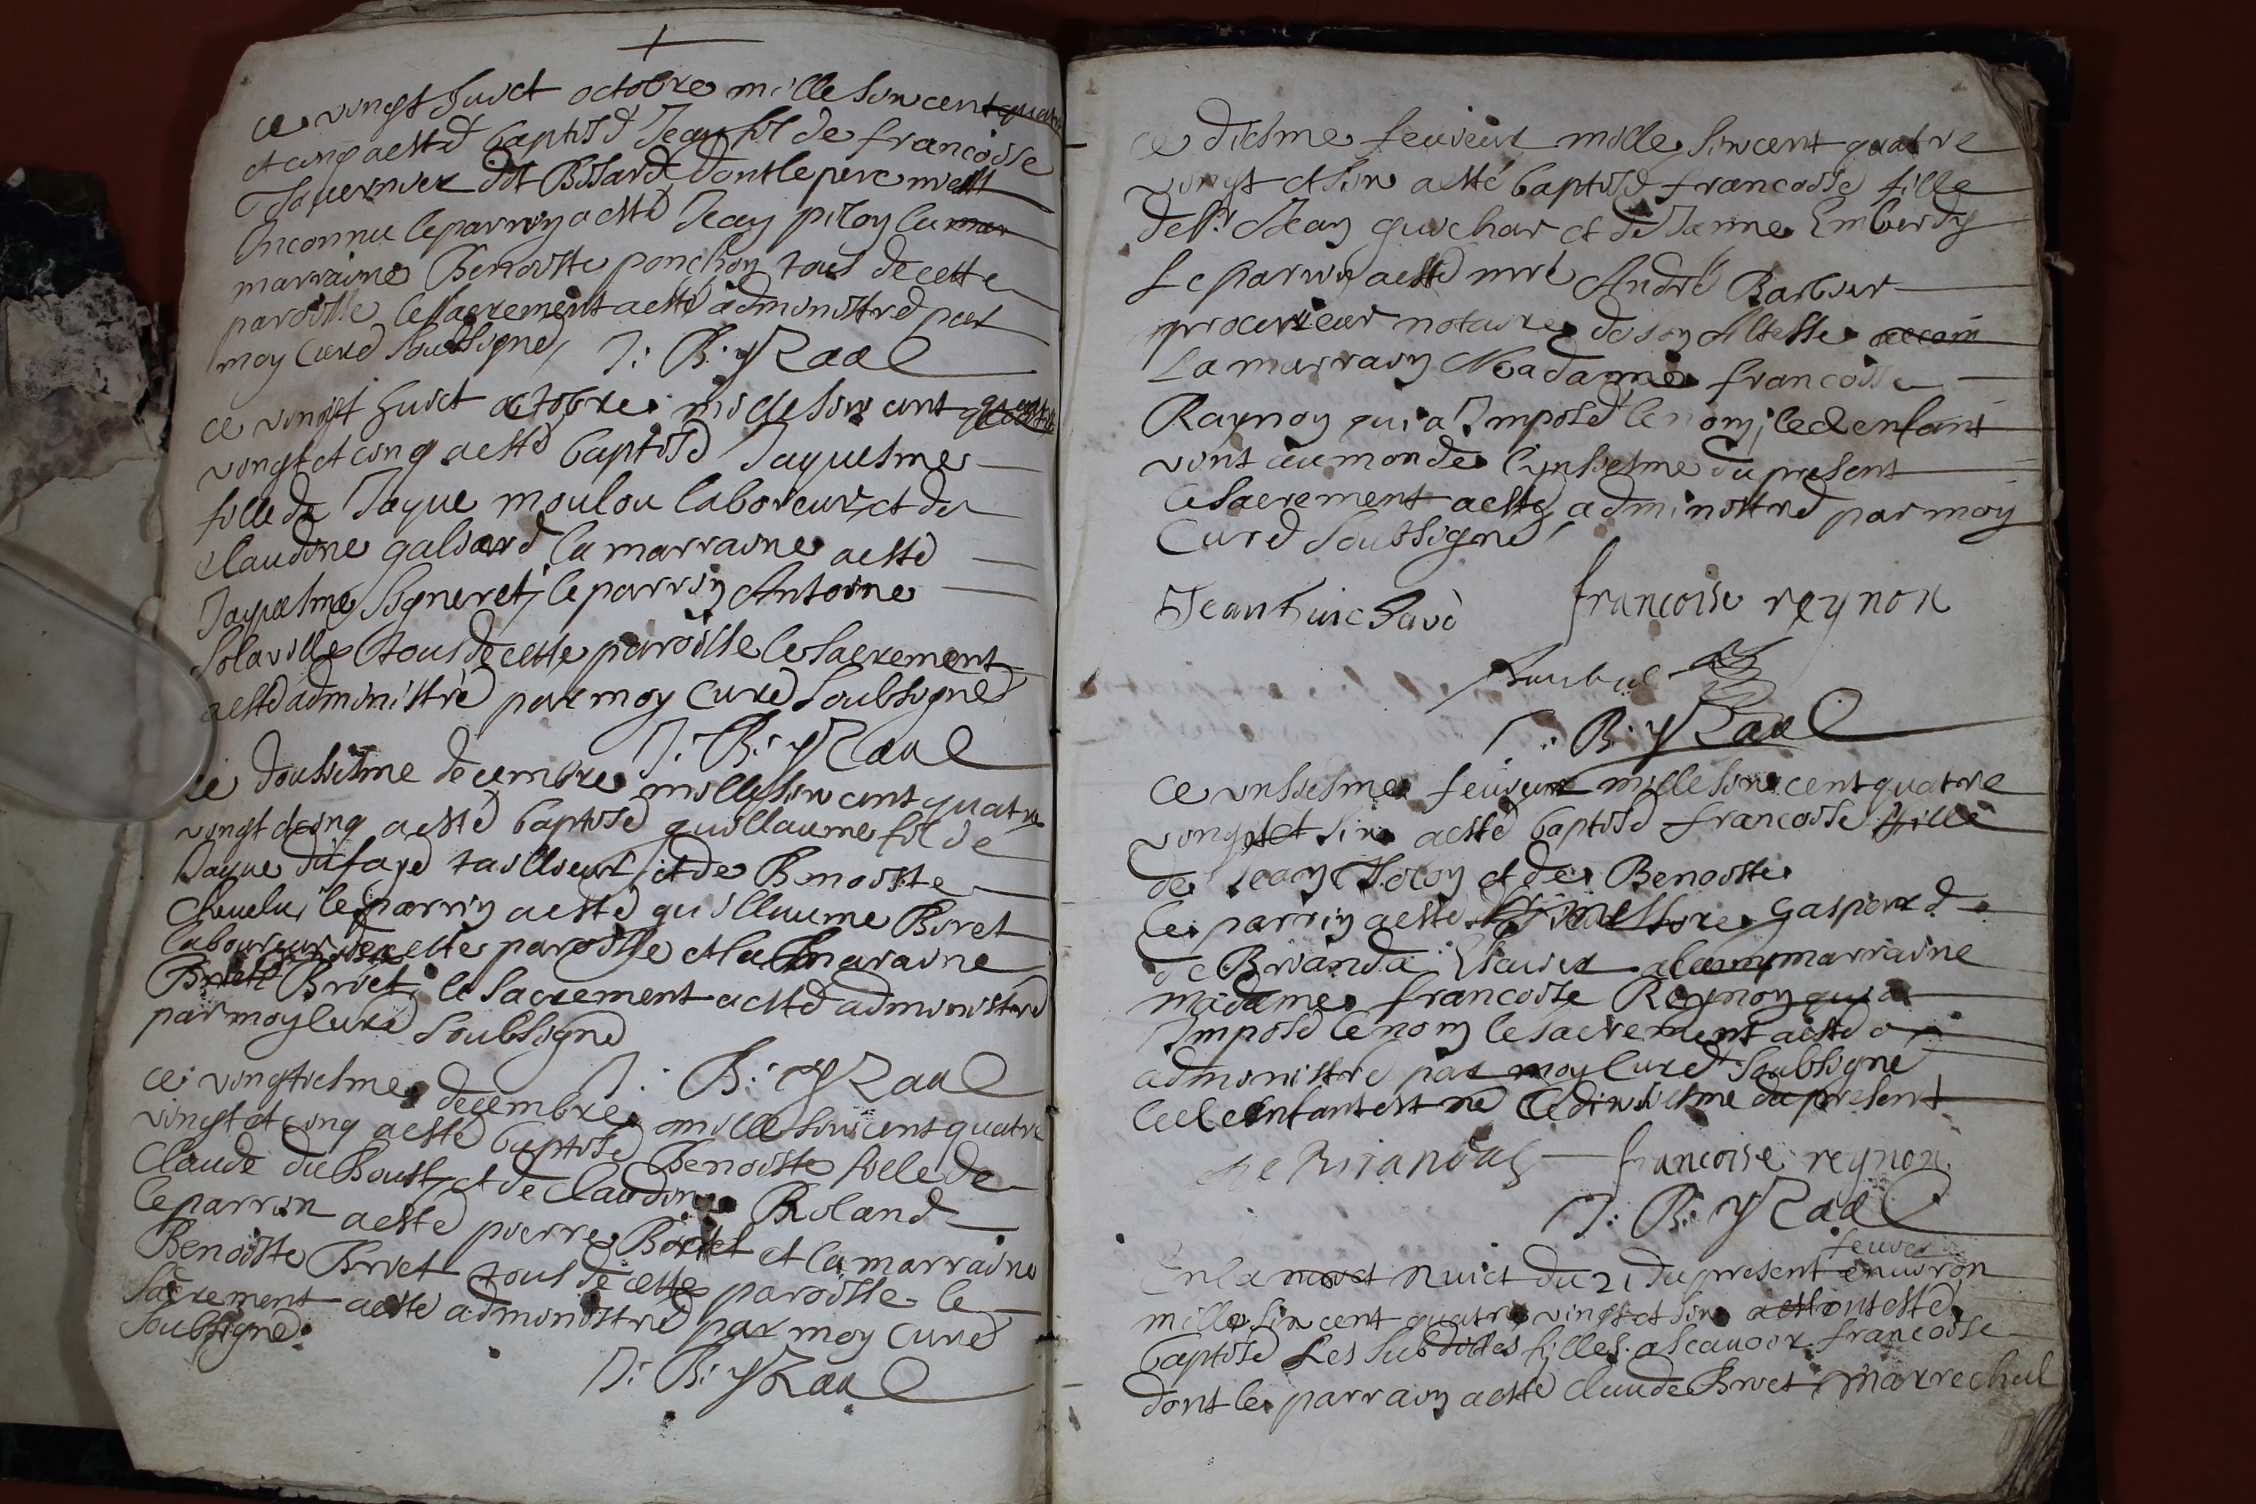 ce vingt huict octobre mille six cent quatre
et cinq a esté baptisé Jean fil de francoise
Tavernier dit Bisard dont le pere m'est
Inconnu le parrin a esté Jean piloy la mar
marraine Benoiste ponchon tous de cette
paroisse le sacrement a esté administré par
moy Curé soubsigné J: B: yRaal
ce vingt huict octobre mille six cent quatre
vingt et cinq a esté baptisé Jaquesme
fille de Jaque moulou laboreur et de
claudine galiard la marraine a esté
Jaquesme signeret le parrin Antoine
Solaville tous de cette paroisse le sacrement
a esté administré par moy Curé soubsigné
J: B: yRaal
ce dousiesme decembre mille six cent quatre
vingt et cinq a esté baptisé guillaume fil de
Jaque dufayd tailleur et de Benoiste
chevelu le parrin a esté guillaume Bivet
laboureur de cette paroisse et la maraine
Brivet le sacrement a esté administré
par moy Curé soubsigné
J: B: yRaal
ce vingtiesme decembre mille six cent quatre
vingt et cinq a esté baptisé Benoiste fille de
Claude du Boust, et de Claudine Roland
le parrin a esté pierre Brivet et la marraine
Benoiste Brivet tous de cette paroisse le
sacrement a esté administré par moy Curé
soubsigné
J: B: yRaal
ce disesme feuvrier mille six cent quatre
vingt et six a esté baptisé francoise fille
de Sr. Jean guichar et de Janne Emberdy
Le parrin a esté mre André Barbier
procureur notaire de son Altesse
La marrain Madame francoise
Raynon qui a Imposé le nom, led enfant
vint au monde l'unsiesme du present
le sacrement a esté administré par moy
Curé soubsigné
Jean Guichard francoise reynon
J: B: yRaal
ce unsiesme feuvrier mille six cent quatre
vingt et six a esté baptisé francoise fille
de Jean et de Benoiste
le parrin a esté messire Gaspard
de Brianda la marraine
madame francoise Reynon qui a
Imposé le nom le sacrement a esté
administré par moy Curé soubsigné
led enfant est né le disiesme du present
De Briandas francoise reynon
J: B: yRaal
feuvrier
En la nuict du 21 du present environ
mille six cent quatre vingt et six ont esté
baptisé Les subdittes filles ascavoir francoise
dont le parrain a esté claude Brivet marrechal